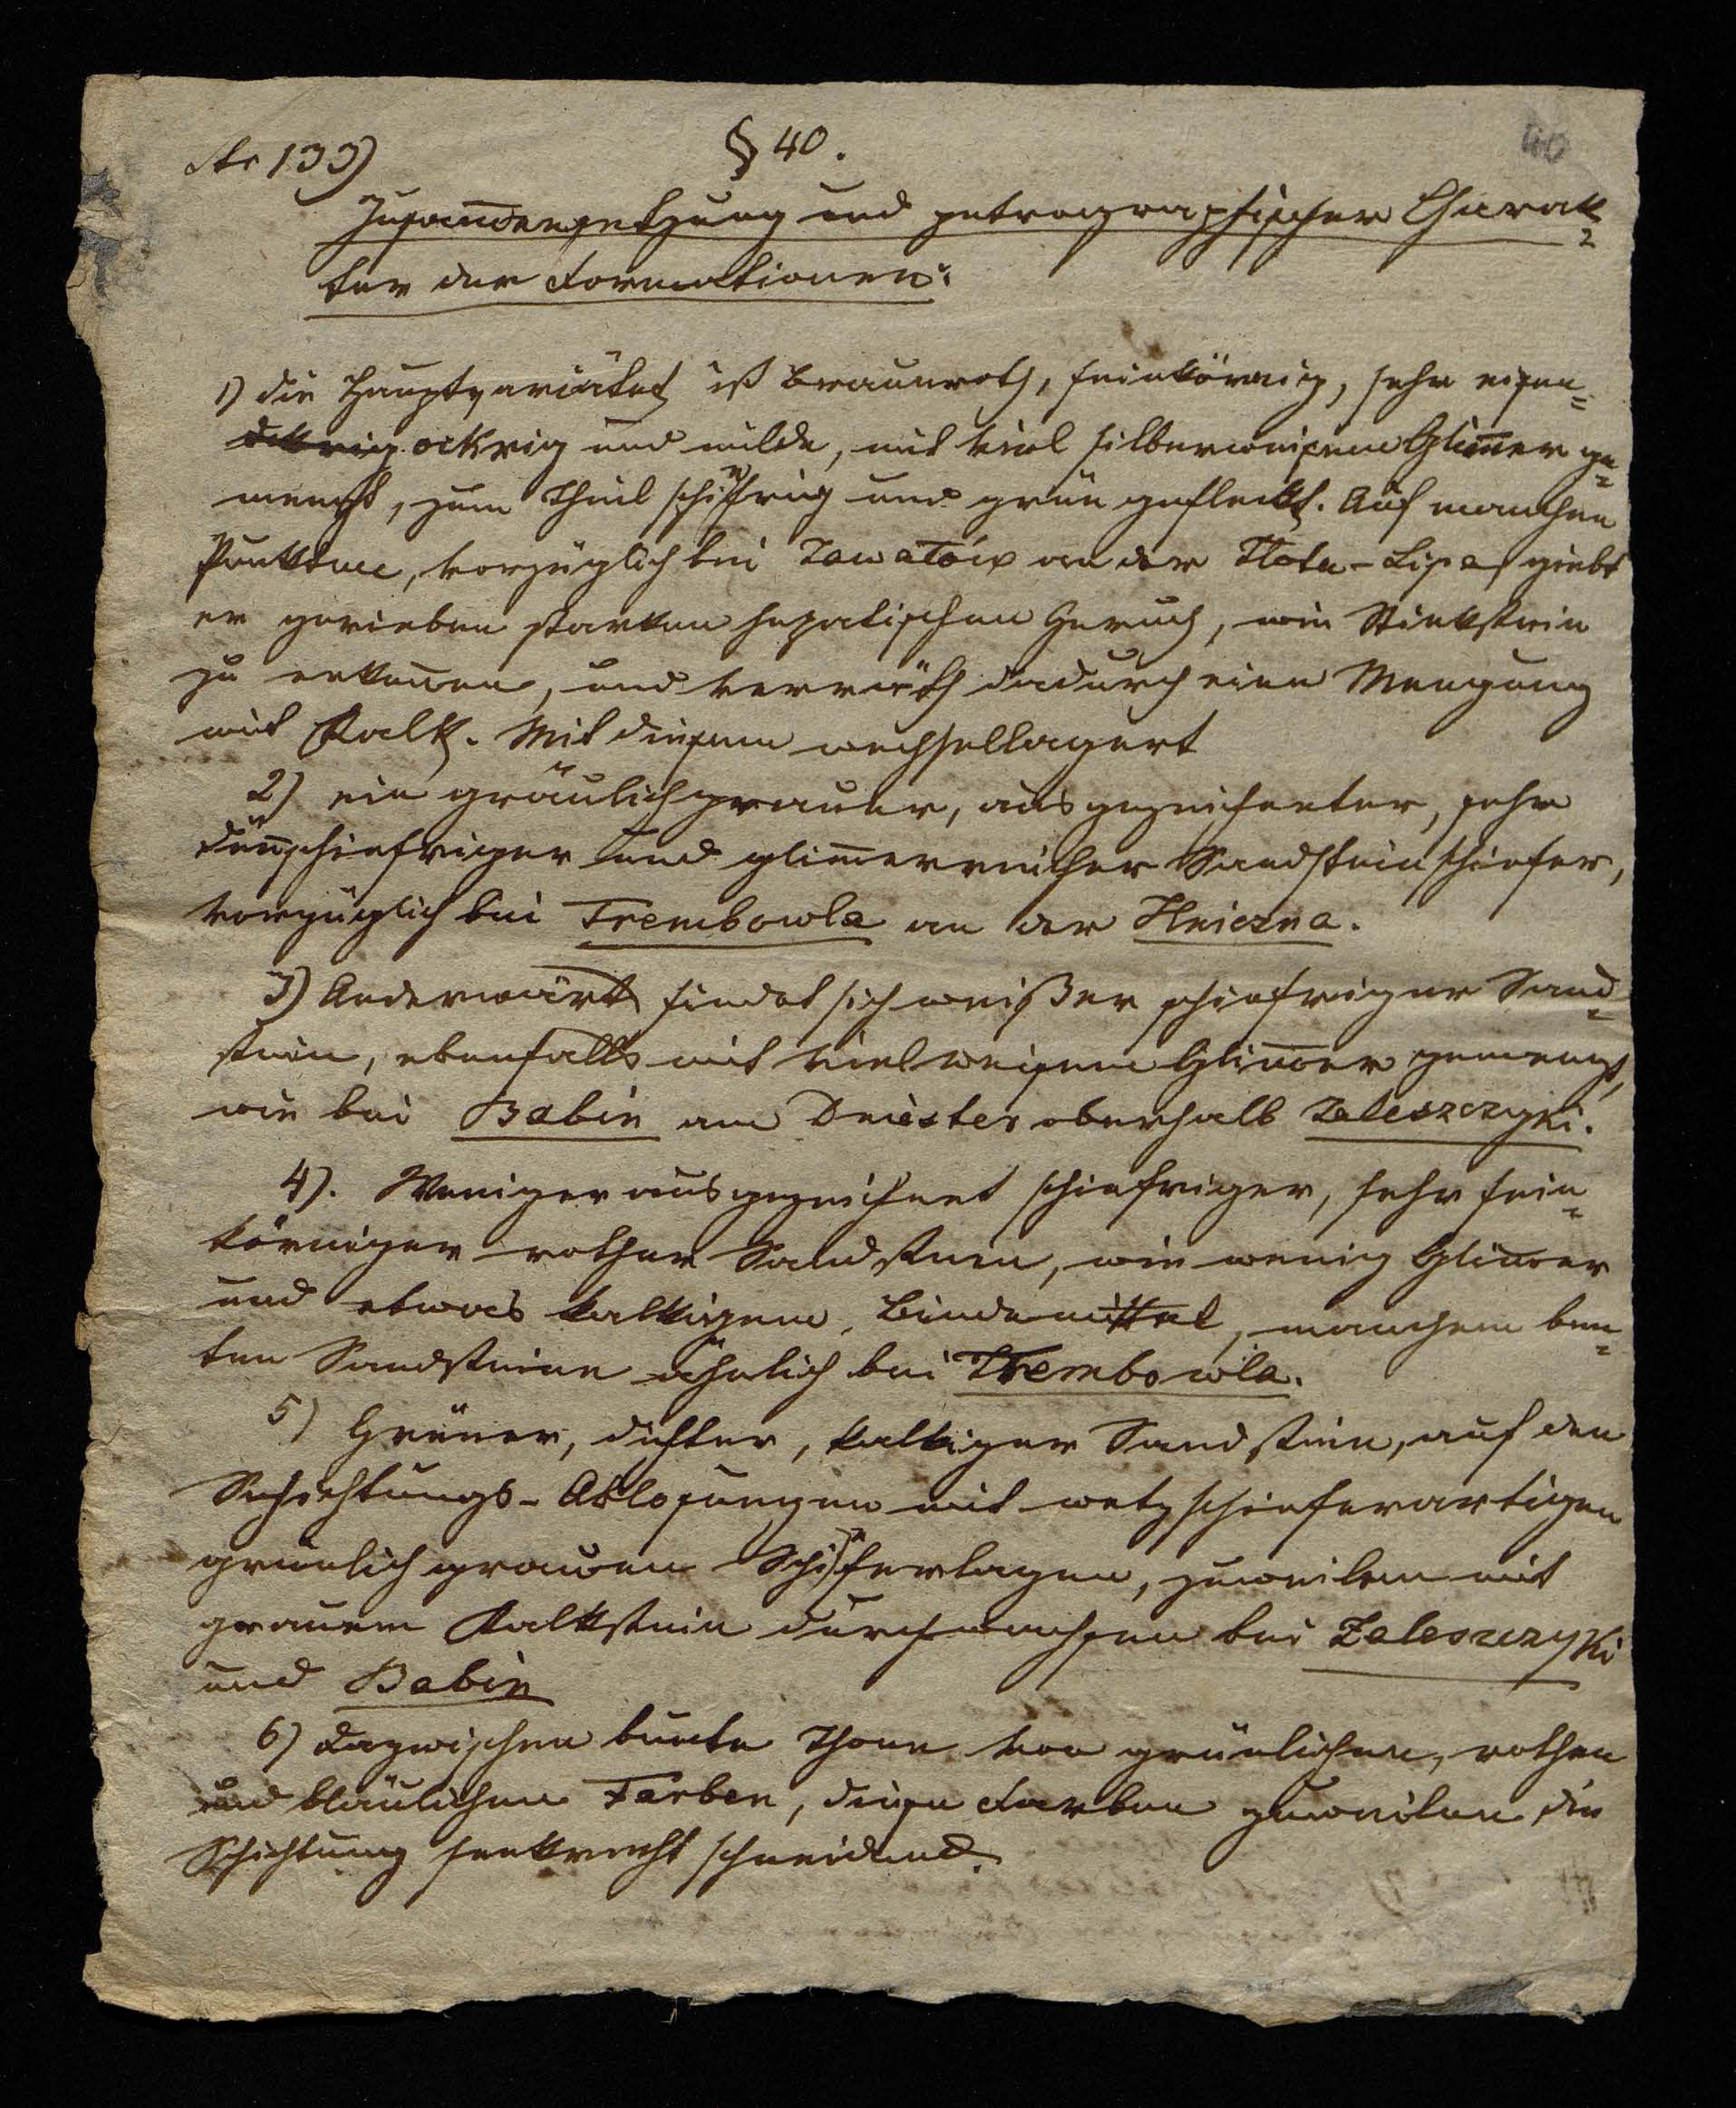 133)
§ 40.
40
Zusam̄ensetzung und petrographischer Charak=
ter der Formationen:
1) Die Hauptvarietät ist braunroth, feinkörnig, sehr eisen=
ockrig und milde, mit viel silberweisem Glim̄er ge=
mengt, zum Theil schiefrig und grün gefleckt. Auf manchen
Punkten, vorzüglich bei Zawałów an der Złota-Lipa giebt
er gerieben starken hepatischen Geruch, wie Stinkstein
zu erken̄en, und verräth dadurch eine Mengung
mit Kalk. Mit diesem wechsellagert
2) ein gräulichgrauer, ausgezeichneter, sehr
dün̄schiefriger und glim̄erreicher Sandsteinschiefer,
vorzüglich bei Trembowla an der Hniezna.
3) Anderwärts findet sich weißer schiefriger Sand=
stein, ebenfalls mit viel weisem Glim̄er gemengt,
wie bei Babin am Dniester oberhalb Zaleszczyki.
4). Weniger ausgezeichnet schiefriger, sehr fein=
körniger rother Sandstein, wie wenig Glim̄er
und etwas kalkigem Bindemittel, manchem bun=
ten Sandsteine ähnlich bei Trembowla.
5) Grüner, dichter, kalkiger Sandstein, auf den
Schichtungs-Ablosungen mit wetzschieferartigen
grünlich grauen Schieferlagen, zuweilen mit
grauem Kalkstein durchwachsen bei Zaleszczyki
und Babin
6) Dazwischen bunte Thone von grünlichen, rothen
und bläulichen Farben, diese Farben zuweilen die
Schichtung senkrecht schneidend.